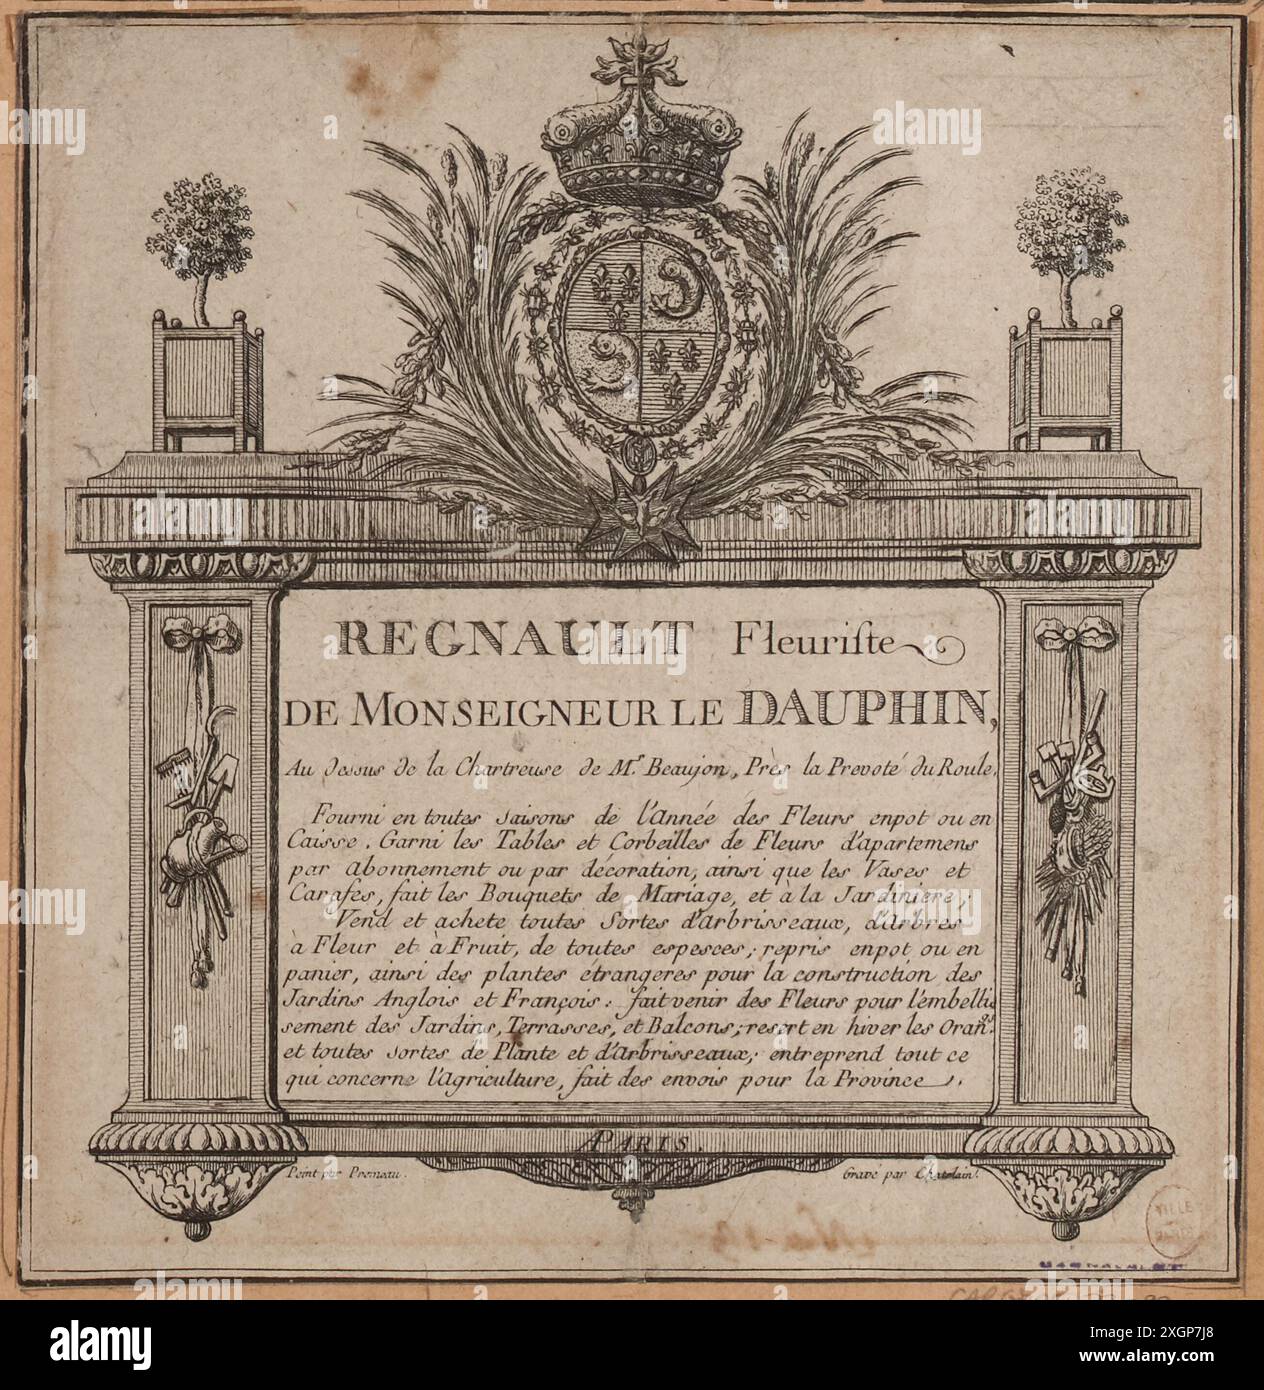 REGNAULT Fleuriste
DE MONSEIGNEUR LE DAUPHIN,
Au dessus de la Chartreuse de Mr. Beaujon, Près la Prevoté du Roule.
Fourni en toutes saisons de l'Année des Fleurs enpot ou en
Caisse. Garni les Tables et Corbeilles de Fleurs d'apartemens
par abonnement ou par décoration, ainsi que les Vases et
Carafes, fait les Bouquets de Mariage, et à la Jardiniere;
Vend et achete toutes Sortes d'Arbrisseaux, d'Arbres
à Fleur et à Fruit, de toutes espesces; repris enpot ou en
panier, ainsi des plantes étrangeres pour la construction des
Jardins Anglois et François: fait venir des Fleurs pour l'embellis
sement des Jardins, Terrasses, et Balcons; resert en hiver les Orangs.
et toutes sortes de Plante et d'Arbrisseaux; entreprend tout ce
qui concerne l'Agriculture, fait des envois pour la Province.
A PARIS.
Peint par Premeau.
Gravé par Chatelain.
VILLE
DE
PARIS
alamy
Image ID: 2XGP7J8
www.alamy.com